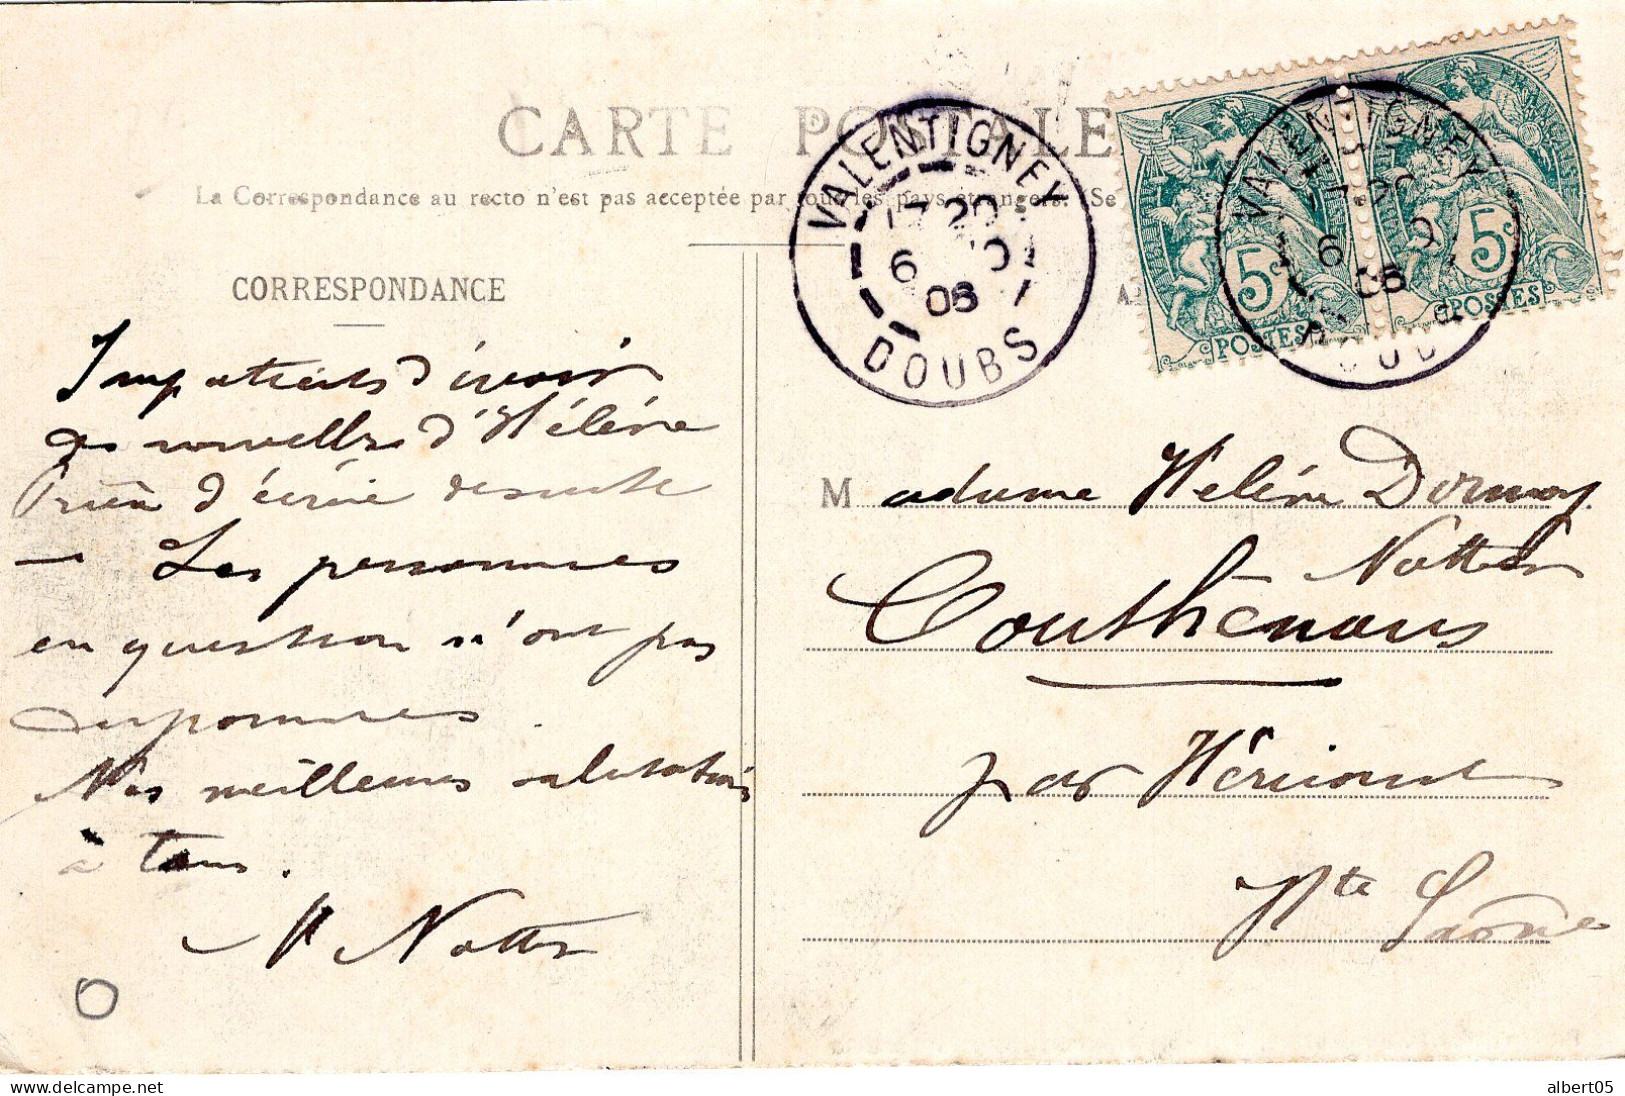 CARTE POSTALE
La Correspondance au recto n'est pas acceptée par tous les pays étrangers. (Se
CORRESPONDANCE
VALENTIGNEY
17 20
6 10
06
DOUBS
VALENTIGNEY
6
06
FRANÇAISE
5c
POSTES
5c
POSTES
Impatients d'avoir
des nouvelles d'Hélène
Prière d'écrire de suite
— Les personnes
en question n'ont pas
Nos meilleures salutations
à tous.
Notter
Madame Heléne Dormoy
Notter
Couthenans
par Héricourt
Hte Saône
albert05